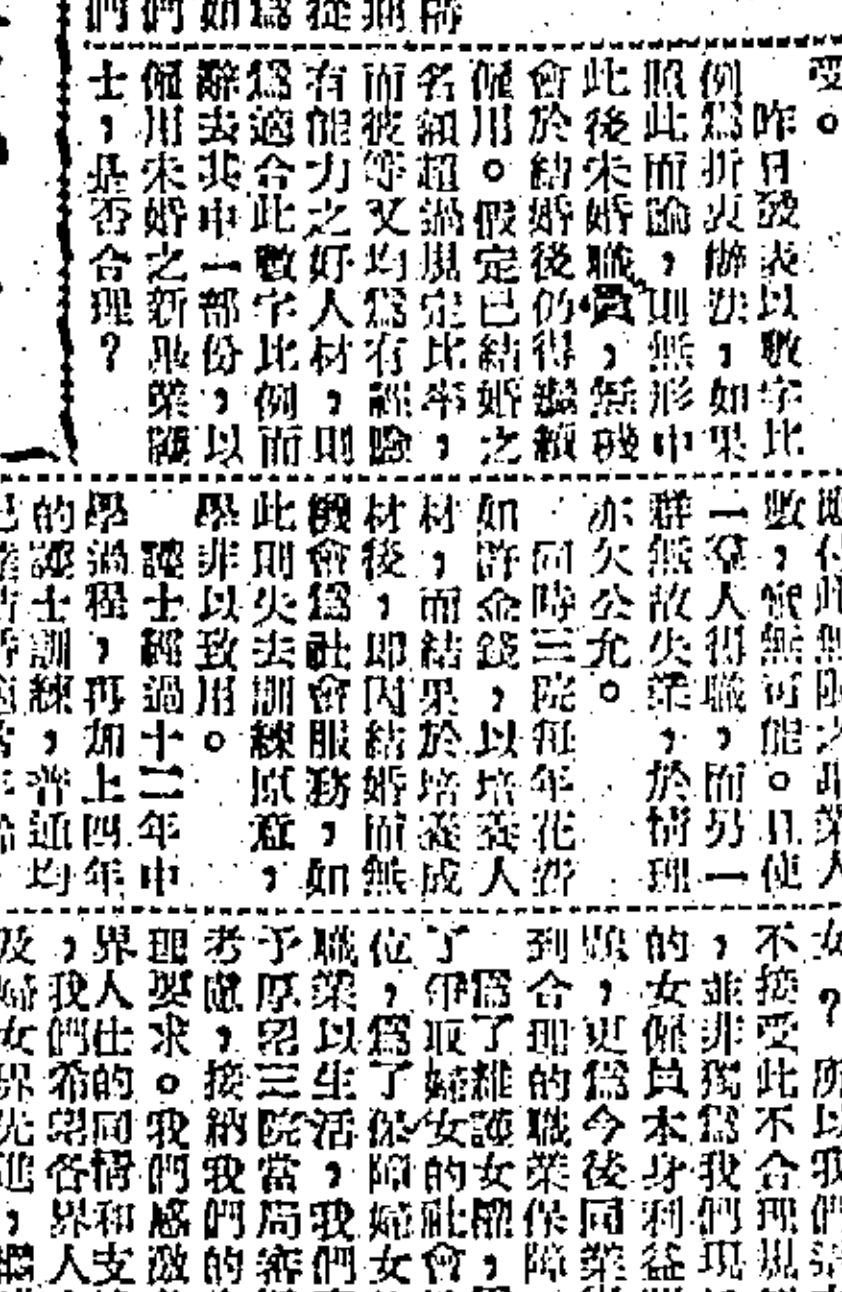 受。
昨日發表以數字比
例爲折衷辦法，如果
照此而論，則無形中
此後未婚職員，無礙
會於結婚後仍得繼續
僱用。假定已結婚之
名額超過規定比率，
而彼等又均爲有經驗
有能力之好人材，則
爲適合此數字比例而
辭去其中一部份，以
僱用未婚之新畢業護
士，是否合理？
數，實無可能。且使
一羣人得職，而另一
群無故失業，於情理
亦欠公允。
同時三院每年花費
如許金錢，以培養人
材，而結果於培養成
材後，即因結婚而無
機會爲社會服務，如
此則失去訓練原意，
學非以致用。
護士經過十二年中
學過程，再加上四年
的護士訓練，普通均
女？所以我們
不接受此不合理規
，並非獨爲我們現
的女僱員本身利益
，更爲今後同業
到合理的職業保障
爲了維護女權，
了爭取婦女的社會
位，爲了保障婦女
職業以生活，我們
予厚望三院當局審
考慮，接納我們的
理要求。我們感激
界人仕的同情和支
，我們希望各界人
及婦女界先進，